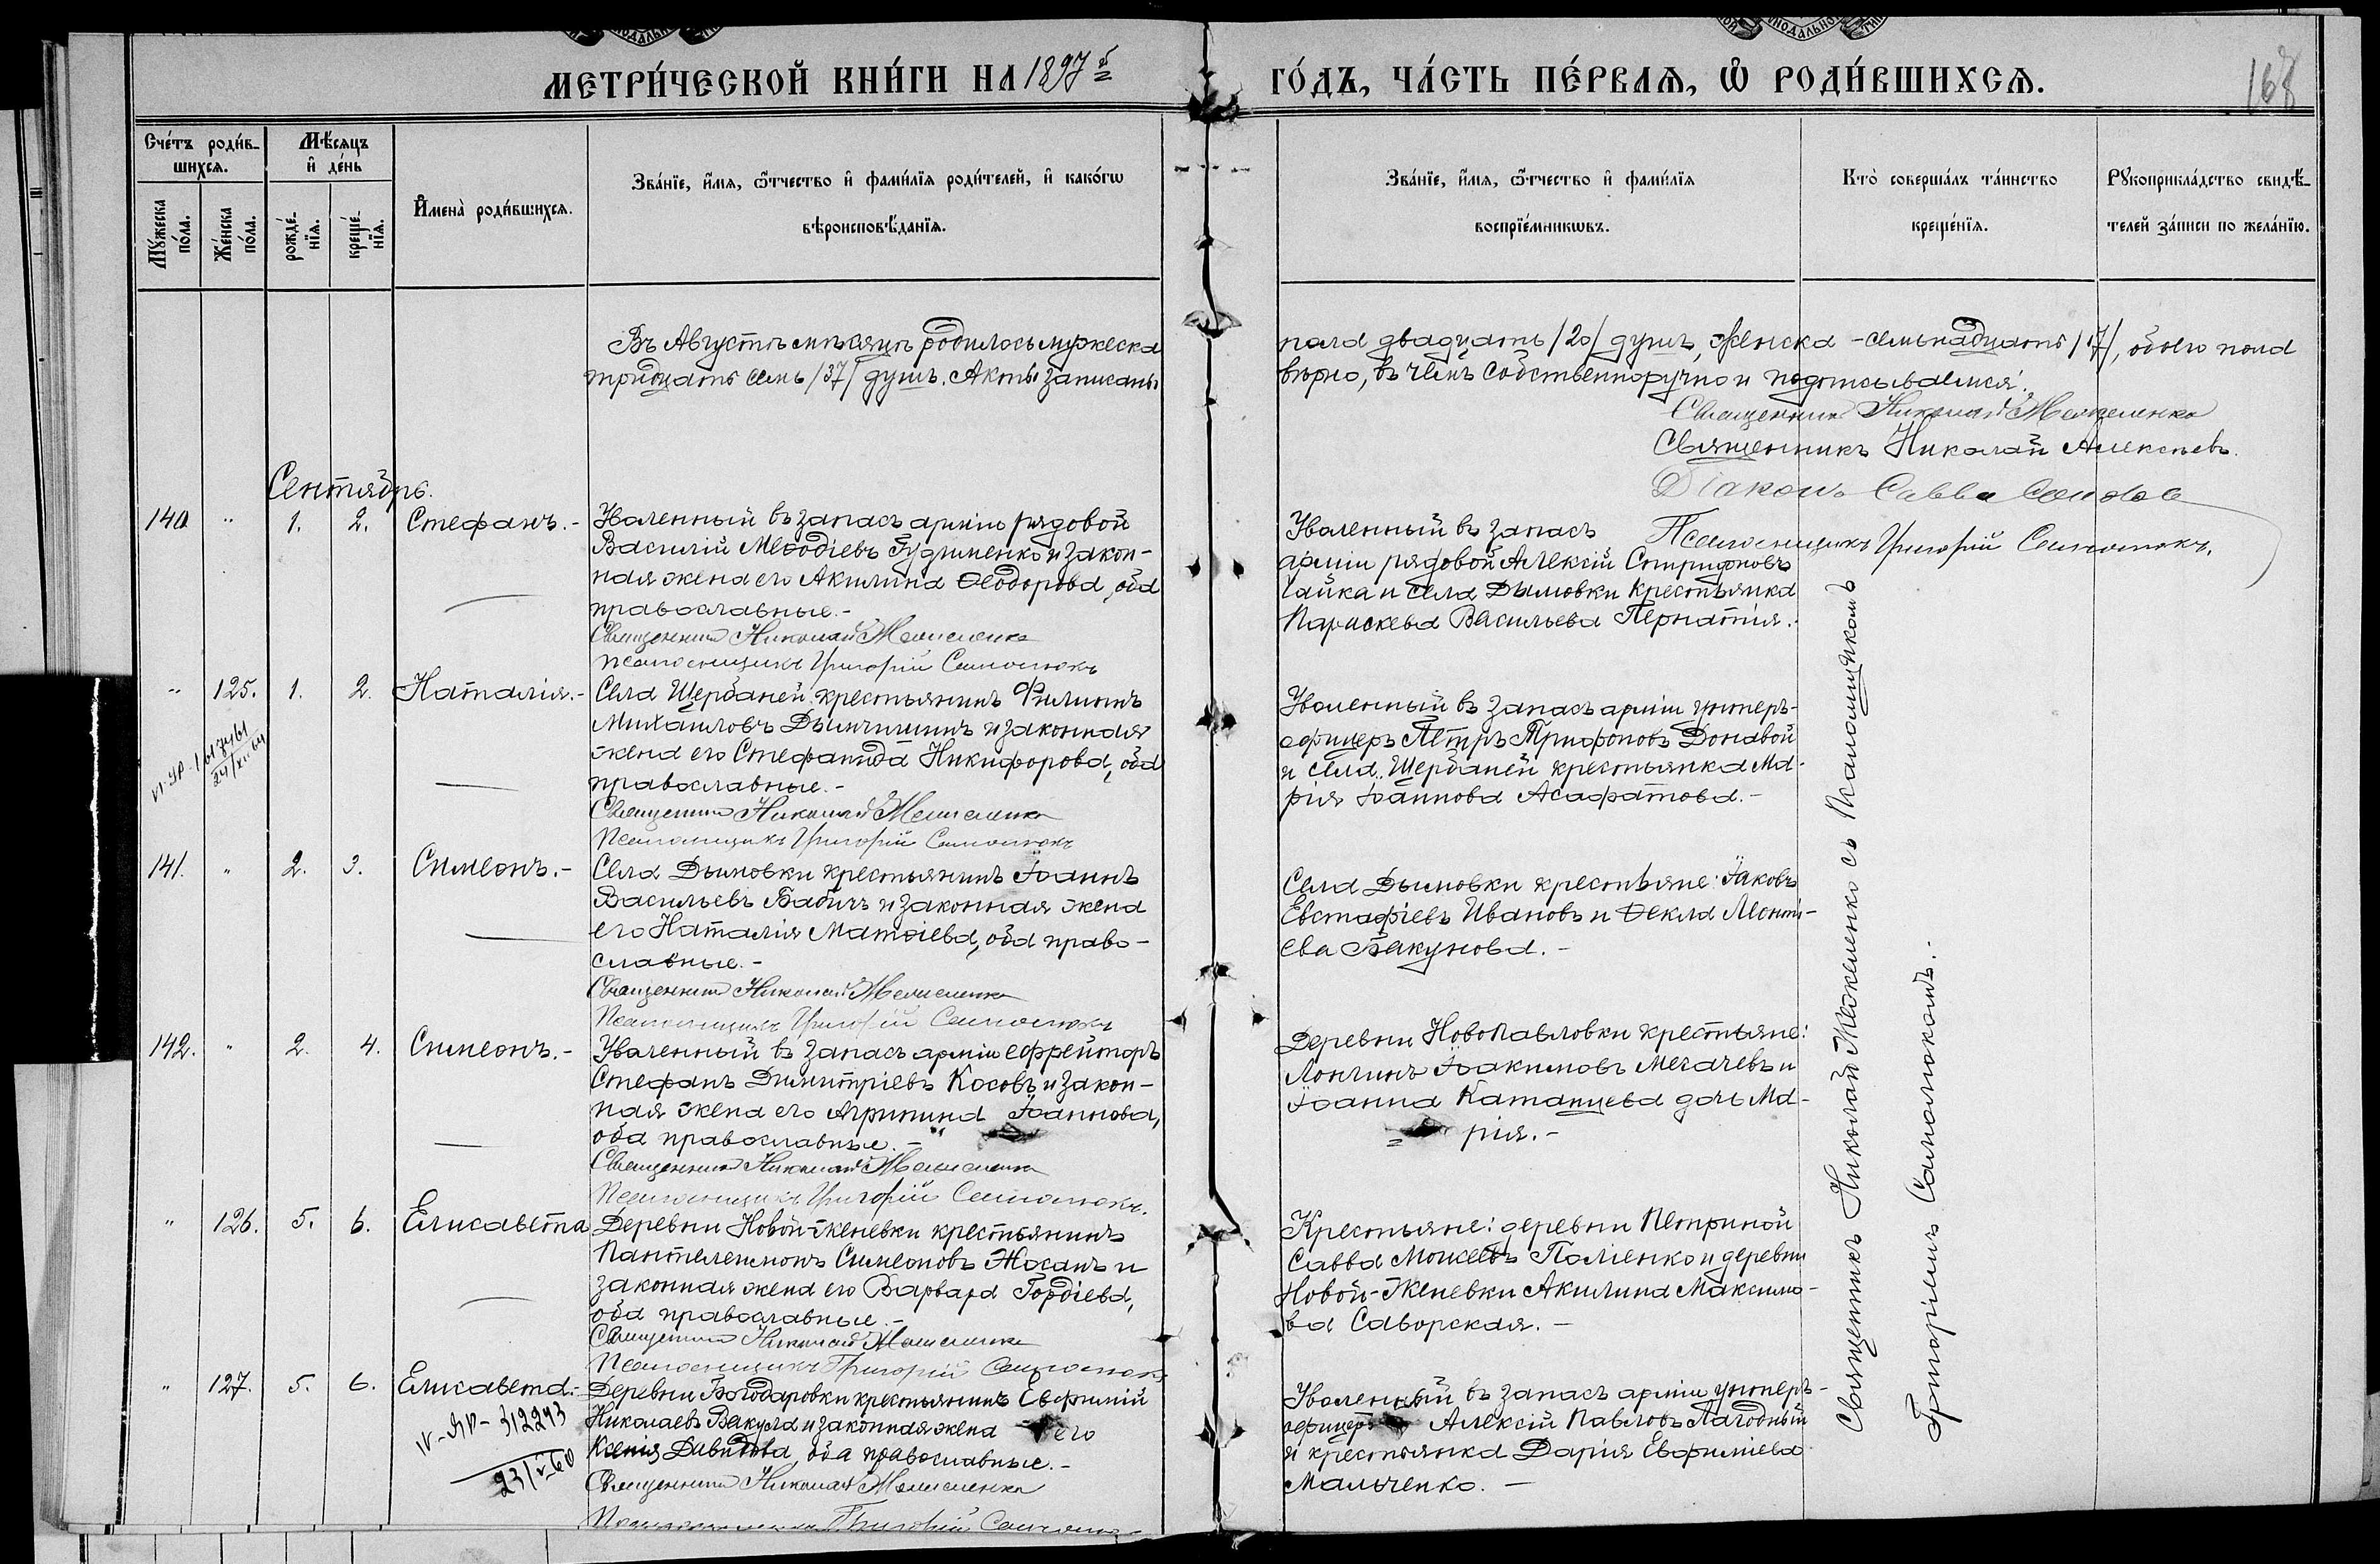 МЕТРИ́ЧЕСКОЙ КНИ́ГИ НА 1897й ГО́ДЪ, ЧА́СТЬ ПЕ́РВАѦ, Ѽ РОДИ́ВШИХСѦ.
168
Сче́тъ роди́в-
шихся.
Мѣ́сяцъ
и҆ де́нь
Мꙋ́жеска
по́ла.
Же́нска
по́ла.
рожде́-
нїя.
креще́-
нїя.
И҆мена̀ роди́вшихся.
Зва́нїе, и҆́мя, ѻ҆́тчество и҆ фами́лїя роди́телей, и҆ како́гѡ
вѣроисповѣ́данїя.
Зва́нїе, и҆́мя, ѻ҆́тчество и҆ фами́лїя
воспрїе́мникѡвъ.
Кто̀ соверша́лъ та́инство
креще́нїя.
Рꙋкоприкла́дство свидѣ́-
телей за́писи по жела́нїю.
Въ Августѣ мѣсяцѣ родилось мужеска пола двадцать /20/ душъ, женска - семьнадцать /17/, обоего пола
тридцать семь /37/ душъ. Акты записаны вѣрно, въ чемъ собственноручно и подписываемся:
Священникъ Николай
Священникъ Николай Алексѣевъ.
Діаконъ Савва
Псаломщикъ Григорій Самолюкъ.
Сентябрь.
140 " 1. 2. Стефанъ.-
Уволенный въ запасъ арміи рядовой
Василій Меѳодіевъ Гудименко и закон-
ная жена его Акилина Ѳеодорова, оба
православные.-
Священникъ Николай
Псаломщикъ Григорій Самолюкъ
Уволенный въ запасъ
арміи рядовой Алексій Спиридоновъ
Гайка и села Дымовки крестьянка
Параскева Васильева Пернатія.-
" 125. 1. 2. Наталія.-
Села Щербаней крестьянинъ Филиппъ
Михайловъ и законная
жена его Стефанида Никифорова, оба
православные.-
Священникъ Николай
Псаломщикъ Григорій Самолюкъ
Уволенный въ запасъ арміи унтеръ-
офицеръ Петръ Трифоновъ Доновой
и села Щербаней крестьянка Ма-
рія Іоаннова Асафатова.-
141. " 2. 3. Симеонъ.-
Села Дымовки крестьянинъ Іоаннъ
Васильевъ Бабичъ и законная жена
его Наталія Матѳіева, оба право-
славные.-
Священникъ Николай
Псаломщикъ Григорій Самолюкъ
Села Дымовки крестьяне: Іаковъ
Евстафіевъ Ивановъ и Ѳекла Леонті-
ева Бакунова.-
142. " 2. 4. Симеонъ.-
Уволенный въ запасъ арміи ефрейторъ
Стефанъ Димитріевъ Косовъ и закон-
ная жена его Агрипина Іоаннова,
оба православные.-
Священникъ Николай
Псаломщикъ Григорій Самолюкъ.
Деревни Новопавловки крестьяне:
Лонгинъ Іоакимовъ Мегачевъ и
Іоанна Катанцева дочь Ма-
рія.-
" 126. 5. 6. Елисавета
Деревни Новой-Женевки крестьянинъ
Пантелеимонъ Симеоновъ Жосанъ и
законная жена его Варвара Гордіева,
оба православные.-
Священникъ Николай
Псаломщикъ Григорій Самолюкъ
Крестьяне: деревни Петриной
Савва Моисеевъ Поліенко и деревни
Новой-Женевки Акилина Максимо-
ва Саворская.-
" 127. 5. 6. Елисавета.-
312293
Деревни Богодаровки крестьянинъ Евфимій
Николаевъ Вакула и законная жена его
Ксенія Давидова, оба православные.-
Священникъ Николай
Григорій
Уволенный въ запасъ арміи унтеръ-
офицеръ Алексій Павловъ Лагодный
и крестьянка Дарія Евфиміева
Мальченко.-
Священникъ Николай съ Псаломщикомъ
Григоріемъ Самолюкомъ.